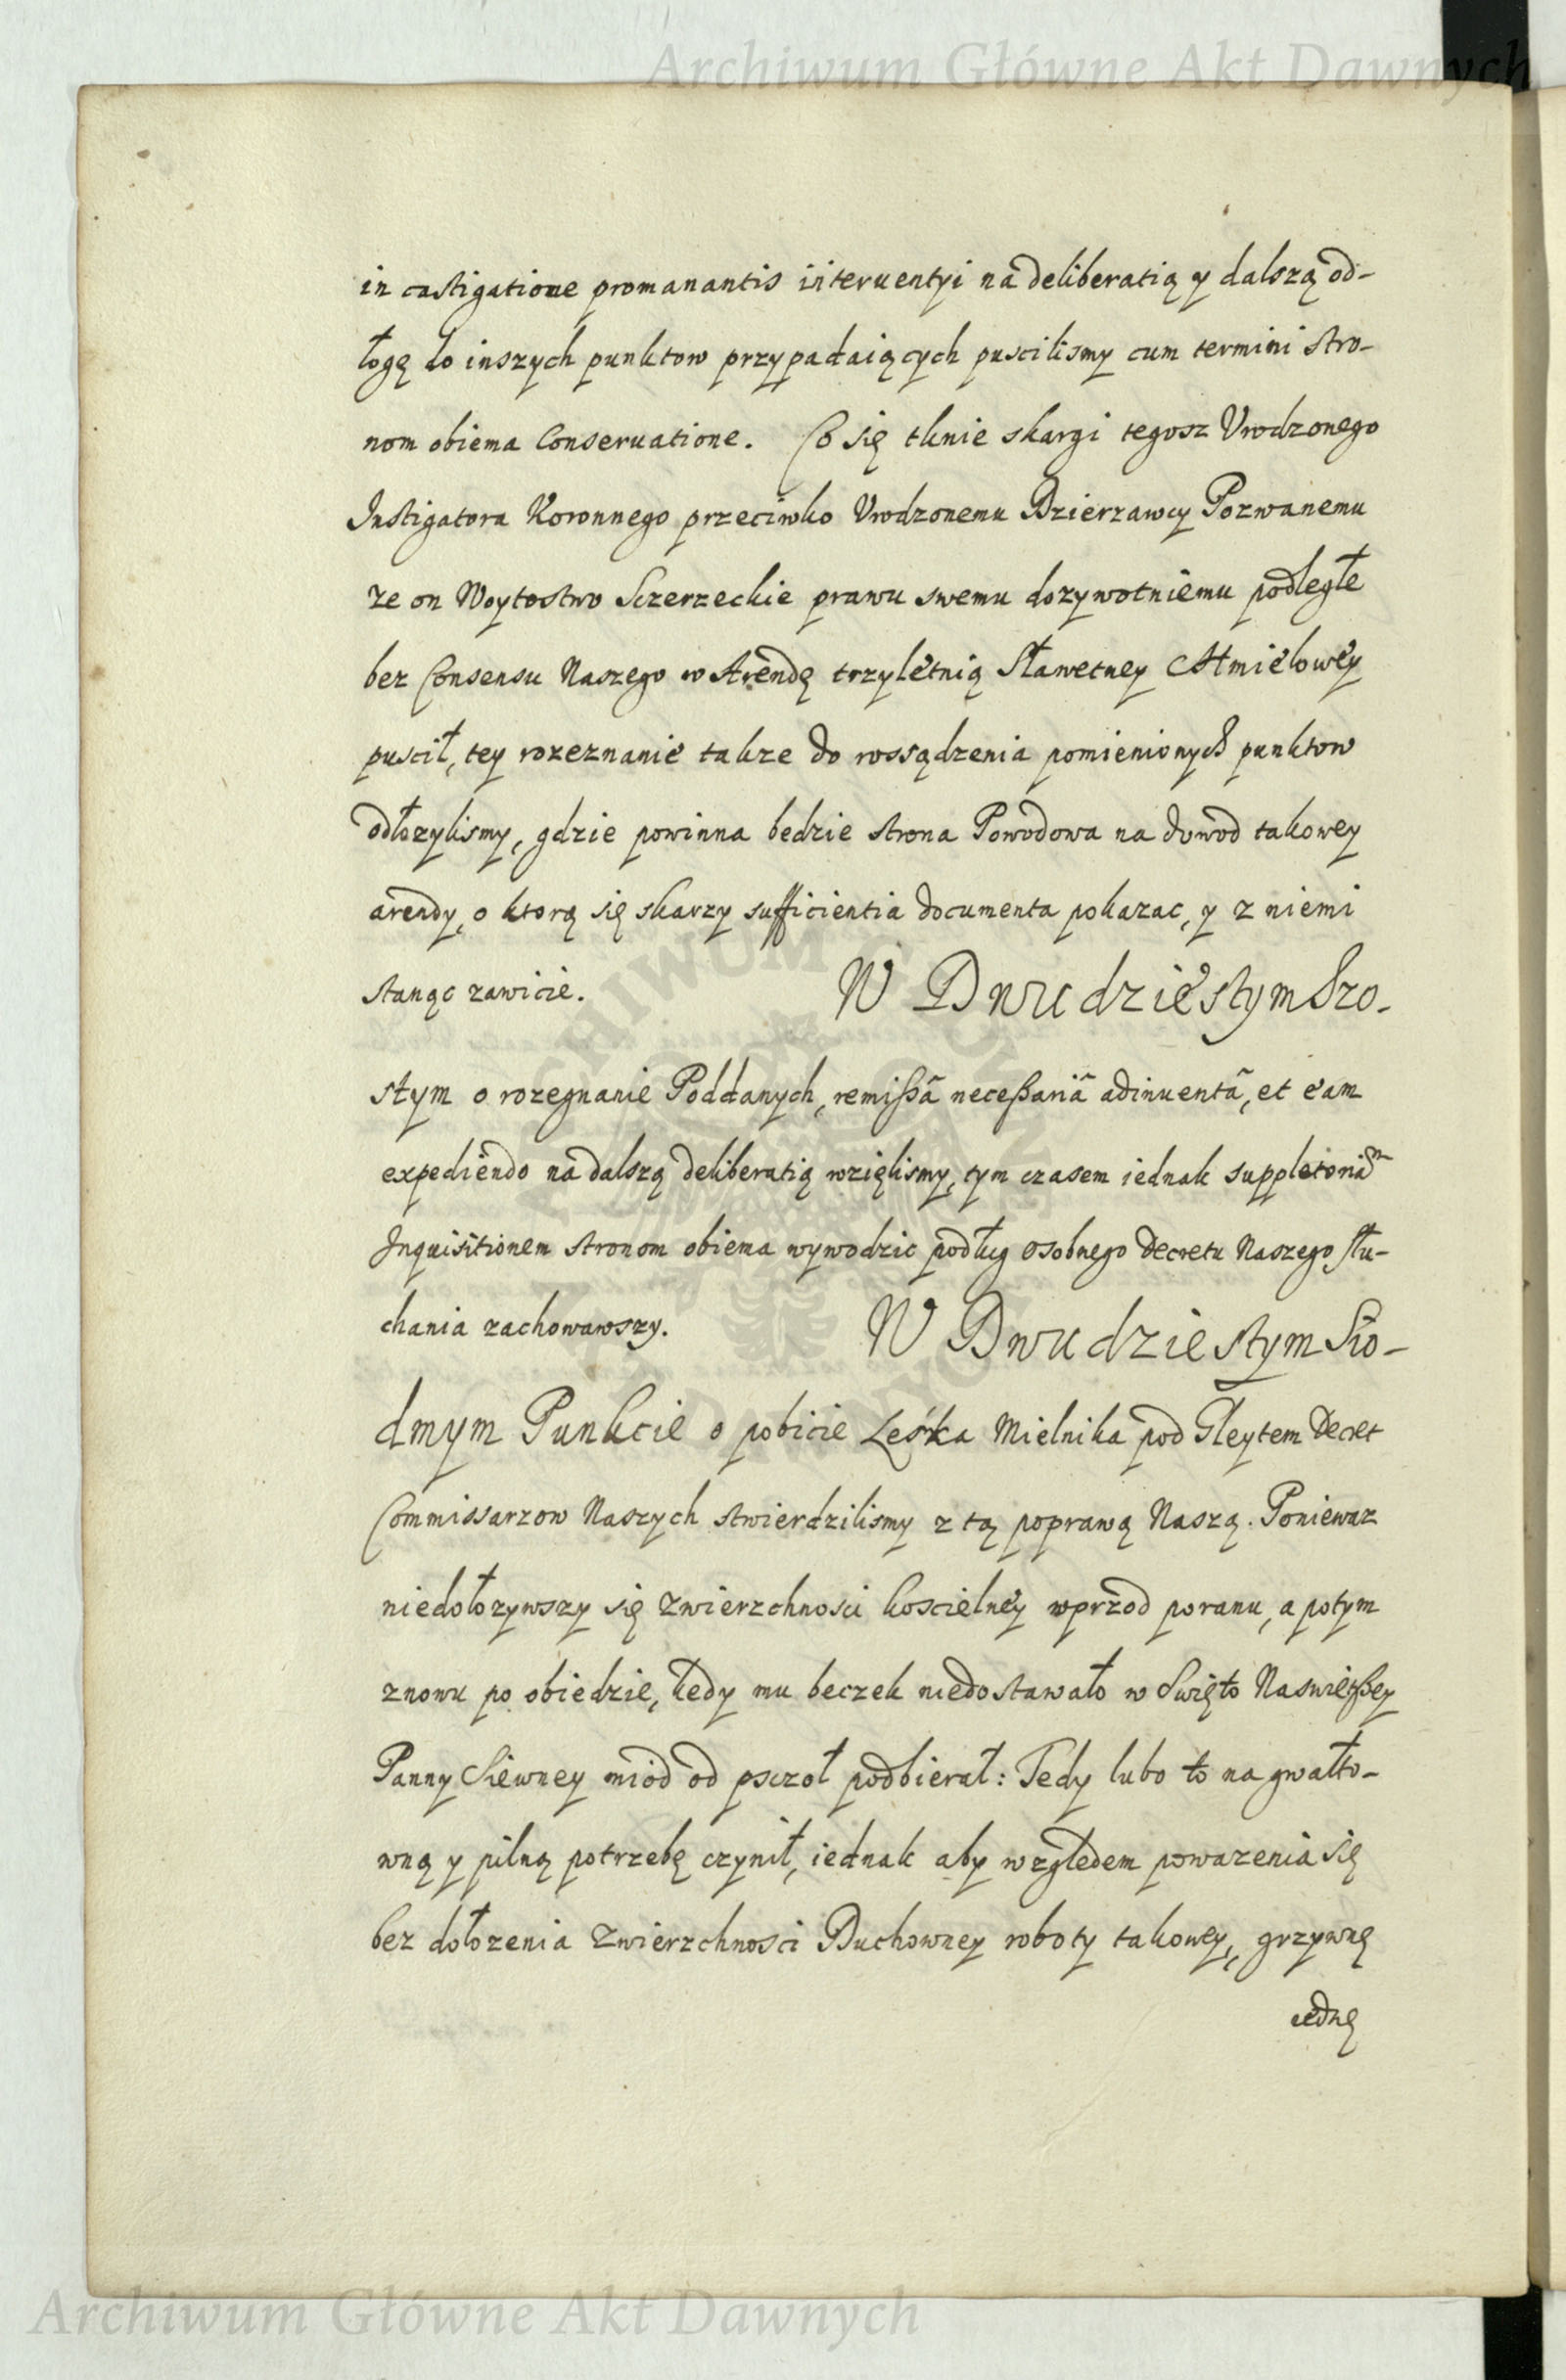 Archiwum Główne Akt Dawnych
in castigatione promanantis interuentyi na deliberatią y dalszą od-
łogę do inszych punktow przypadaiących puscilismy cum termini stro-
nom obiema Conseruatione. Co się tknie skargi tegosz Vrodzonego
Instigatora Koronnego przeciwko Vrodzonemu Dzierzawcy Pozwanemu
ze on Woytostwo Sczerzeckie prawu swemu dozywotniemu podległe
bez Consensu Naszego w Arendę trzyletnią Sławetney Chmielowey
puscił, tey rozeznanie takze do rossądzenia pomienionych punktow
odłozylismy, gdzie powinna bedzie strona Powodowa na dowod takowey
arendy, o ktorą się skarzy sufficientia documenta pokazac, y z niemi
stanąc zawicie. W Dwudziestym Szo-
stym o rozegnanie Poddanych, remißã neceßariã adinuentã, et eam
expediendo na dalszą deliberatią wzięlismy, tym czasem iednak suppletoriam
Inquisitionem stronom obiema wywodzic podług osobnego Decretu Naszego słu-
chania zachowawszy. W Dwudziestym Sio-
dmym Punkcie o pobicie Leśka Mielnika pod Gleytem Decret
Commissarzow Naszych stwierdzilismy z tą poprawą Naszą. Poniewaz
niedołozywszy się Zwierzchnosci koscielney wprzod poranu, a potym
znowu po obiedzie, kedy mu beczek niedostawało w Swięto Naswiętßey
Panny Siewney miod od psczoł podbierał: Tedy lubo to na gwałto-
wną y pilną potrzebę czynił, iednak aby względem powazenia się
bez dołozenia Zwierzchnosci Duchowney roboty takowey, grzywnę
iednę
Archiwum Główne Akt Dawnych